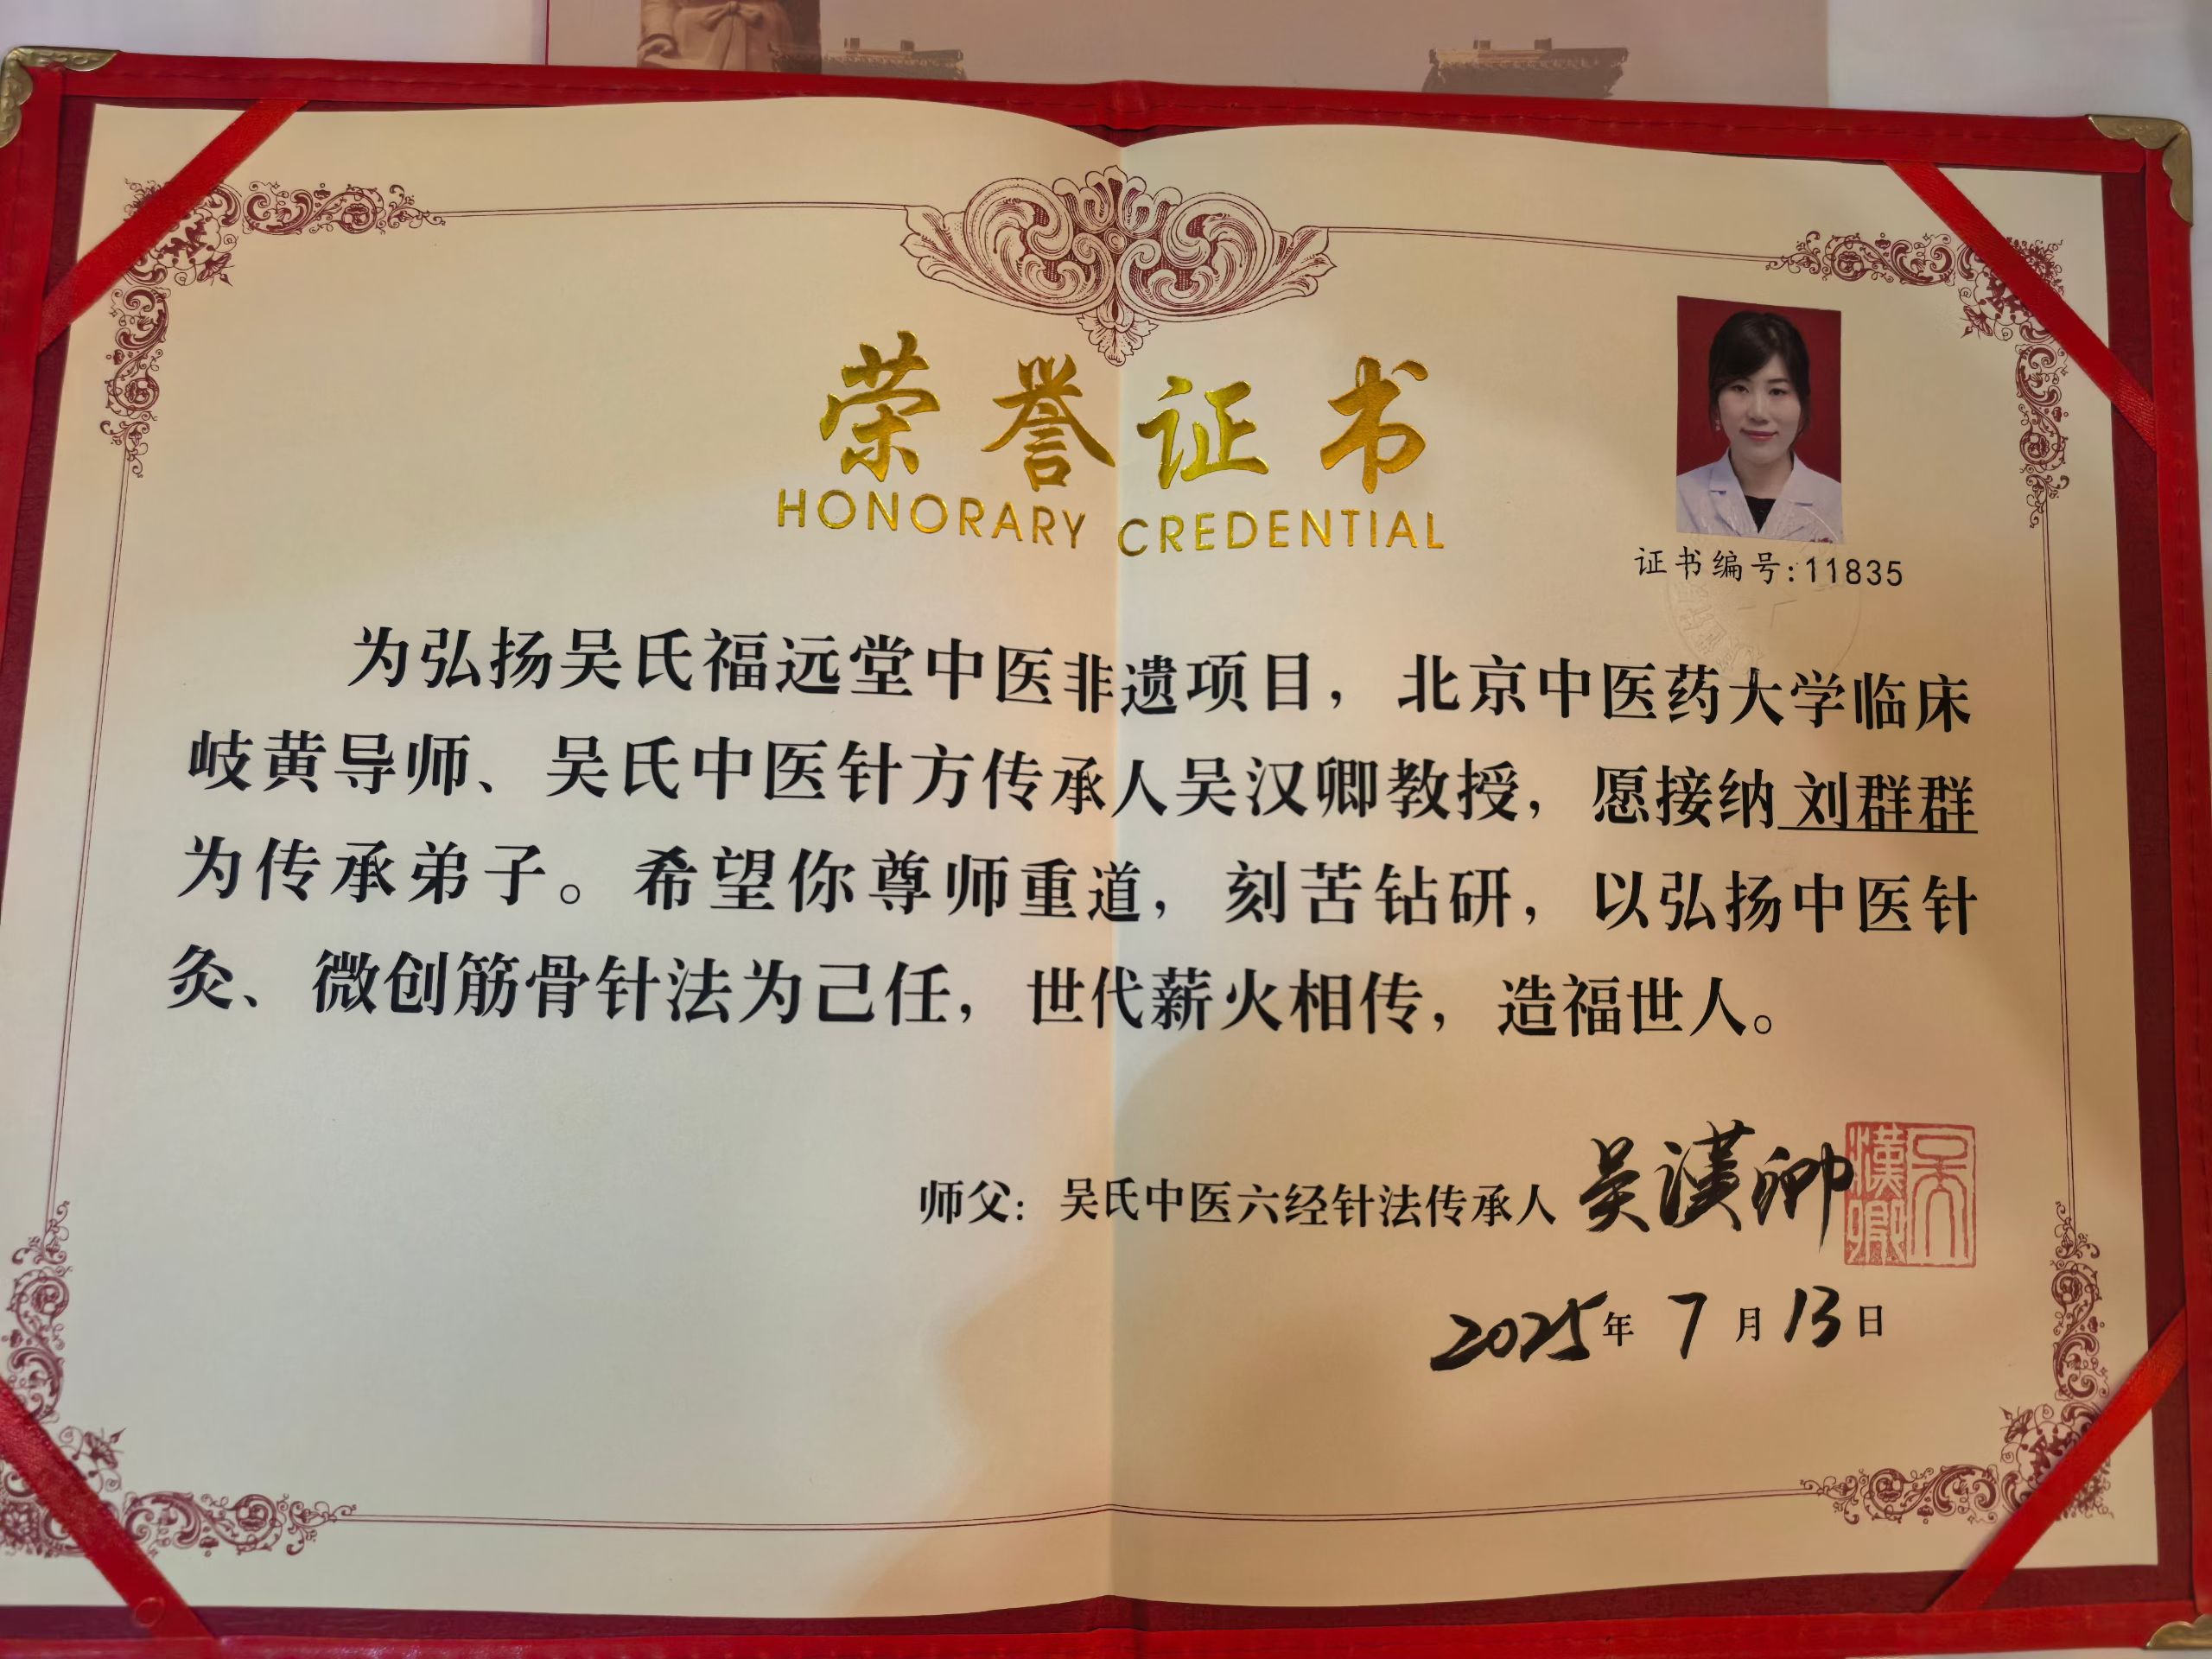 荣誉证书
HONORARY CREDENTIAL
证书编号:11835
为弘扬吴氏福远堂中医非遗项目，北京中医药大学临床
岐黄导师、吴氏中医针方传承人吴汉卿教授，愿接纳 刘群群
为传承弟子。希望你尊师重道，刻苦钻研，以弘扬中医针
灸、微创筋骨针法为己任，世代薪火相传，造福世人。
师父：吴氏中医六经针法传承人 吴漢卿
吴漢卿
2025年7月13日